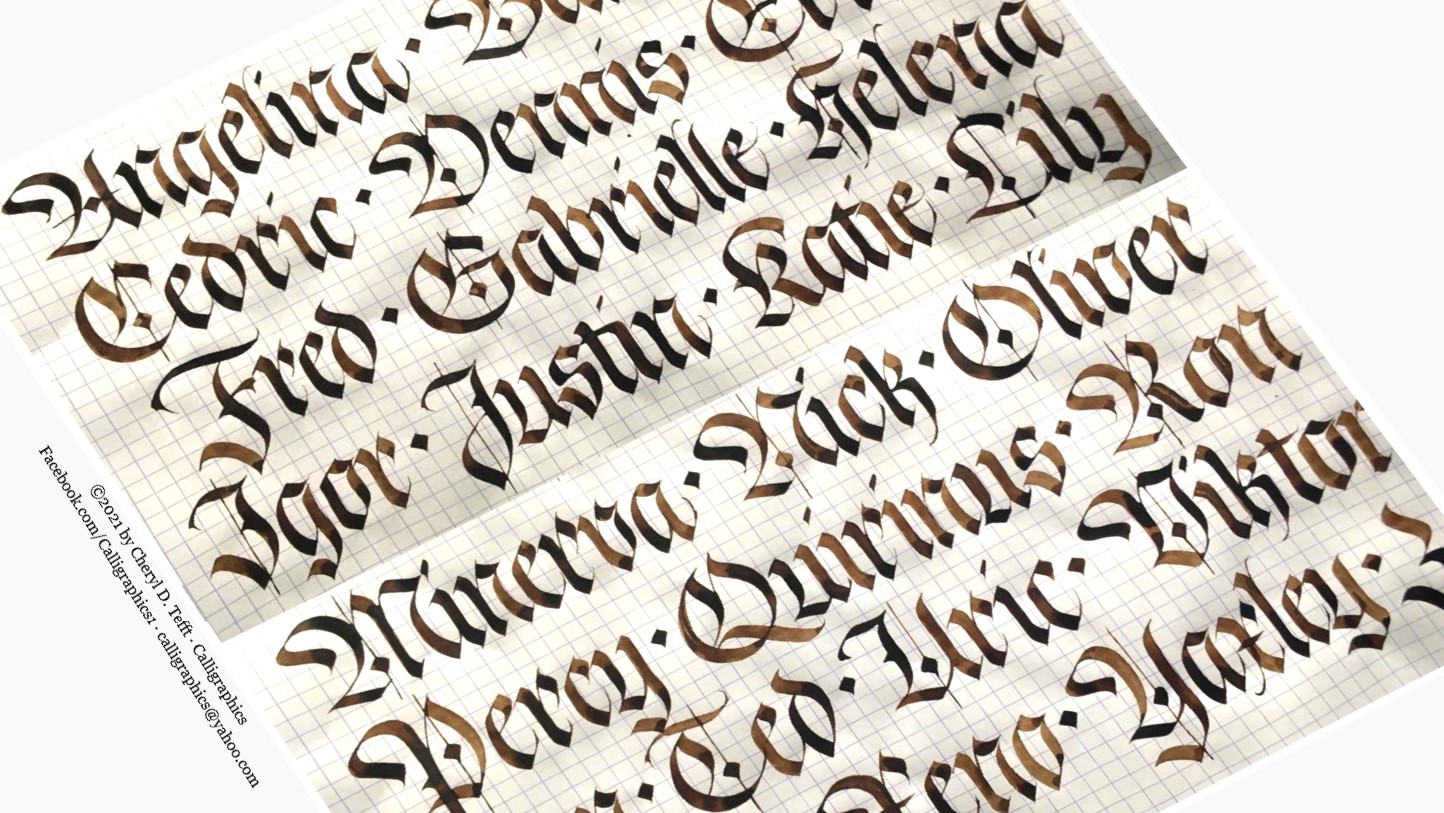 Angelina ·
Cedric · Dennis ·
Fred · Gabrielle · Helena
Igor · Justin · Katie · Lily
Minerva · Nick · Oliver
Percy · Quirinus · Ron
Ted · Ulric · Viktor
Xeno · Yaxley ·
©2021 by Cheryl D. Tefft · Calligraphics
Facebook.com/Calligraphics1 · calligraphics@yahoo.com